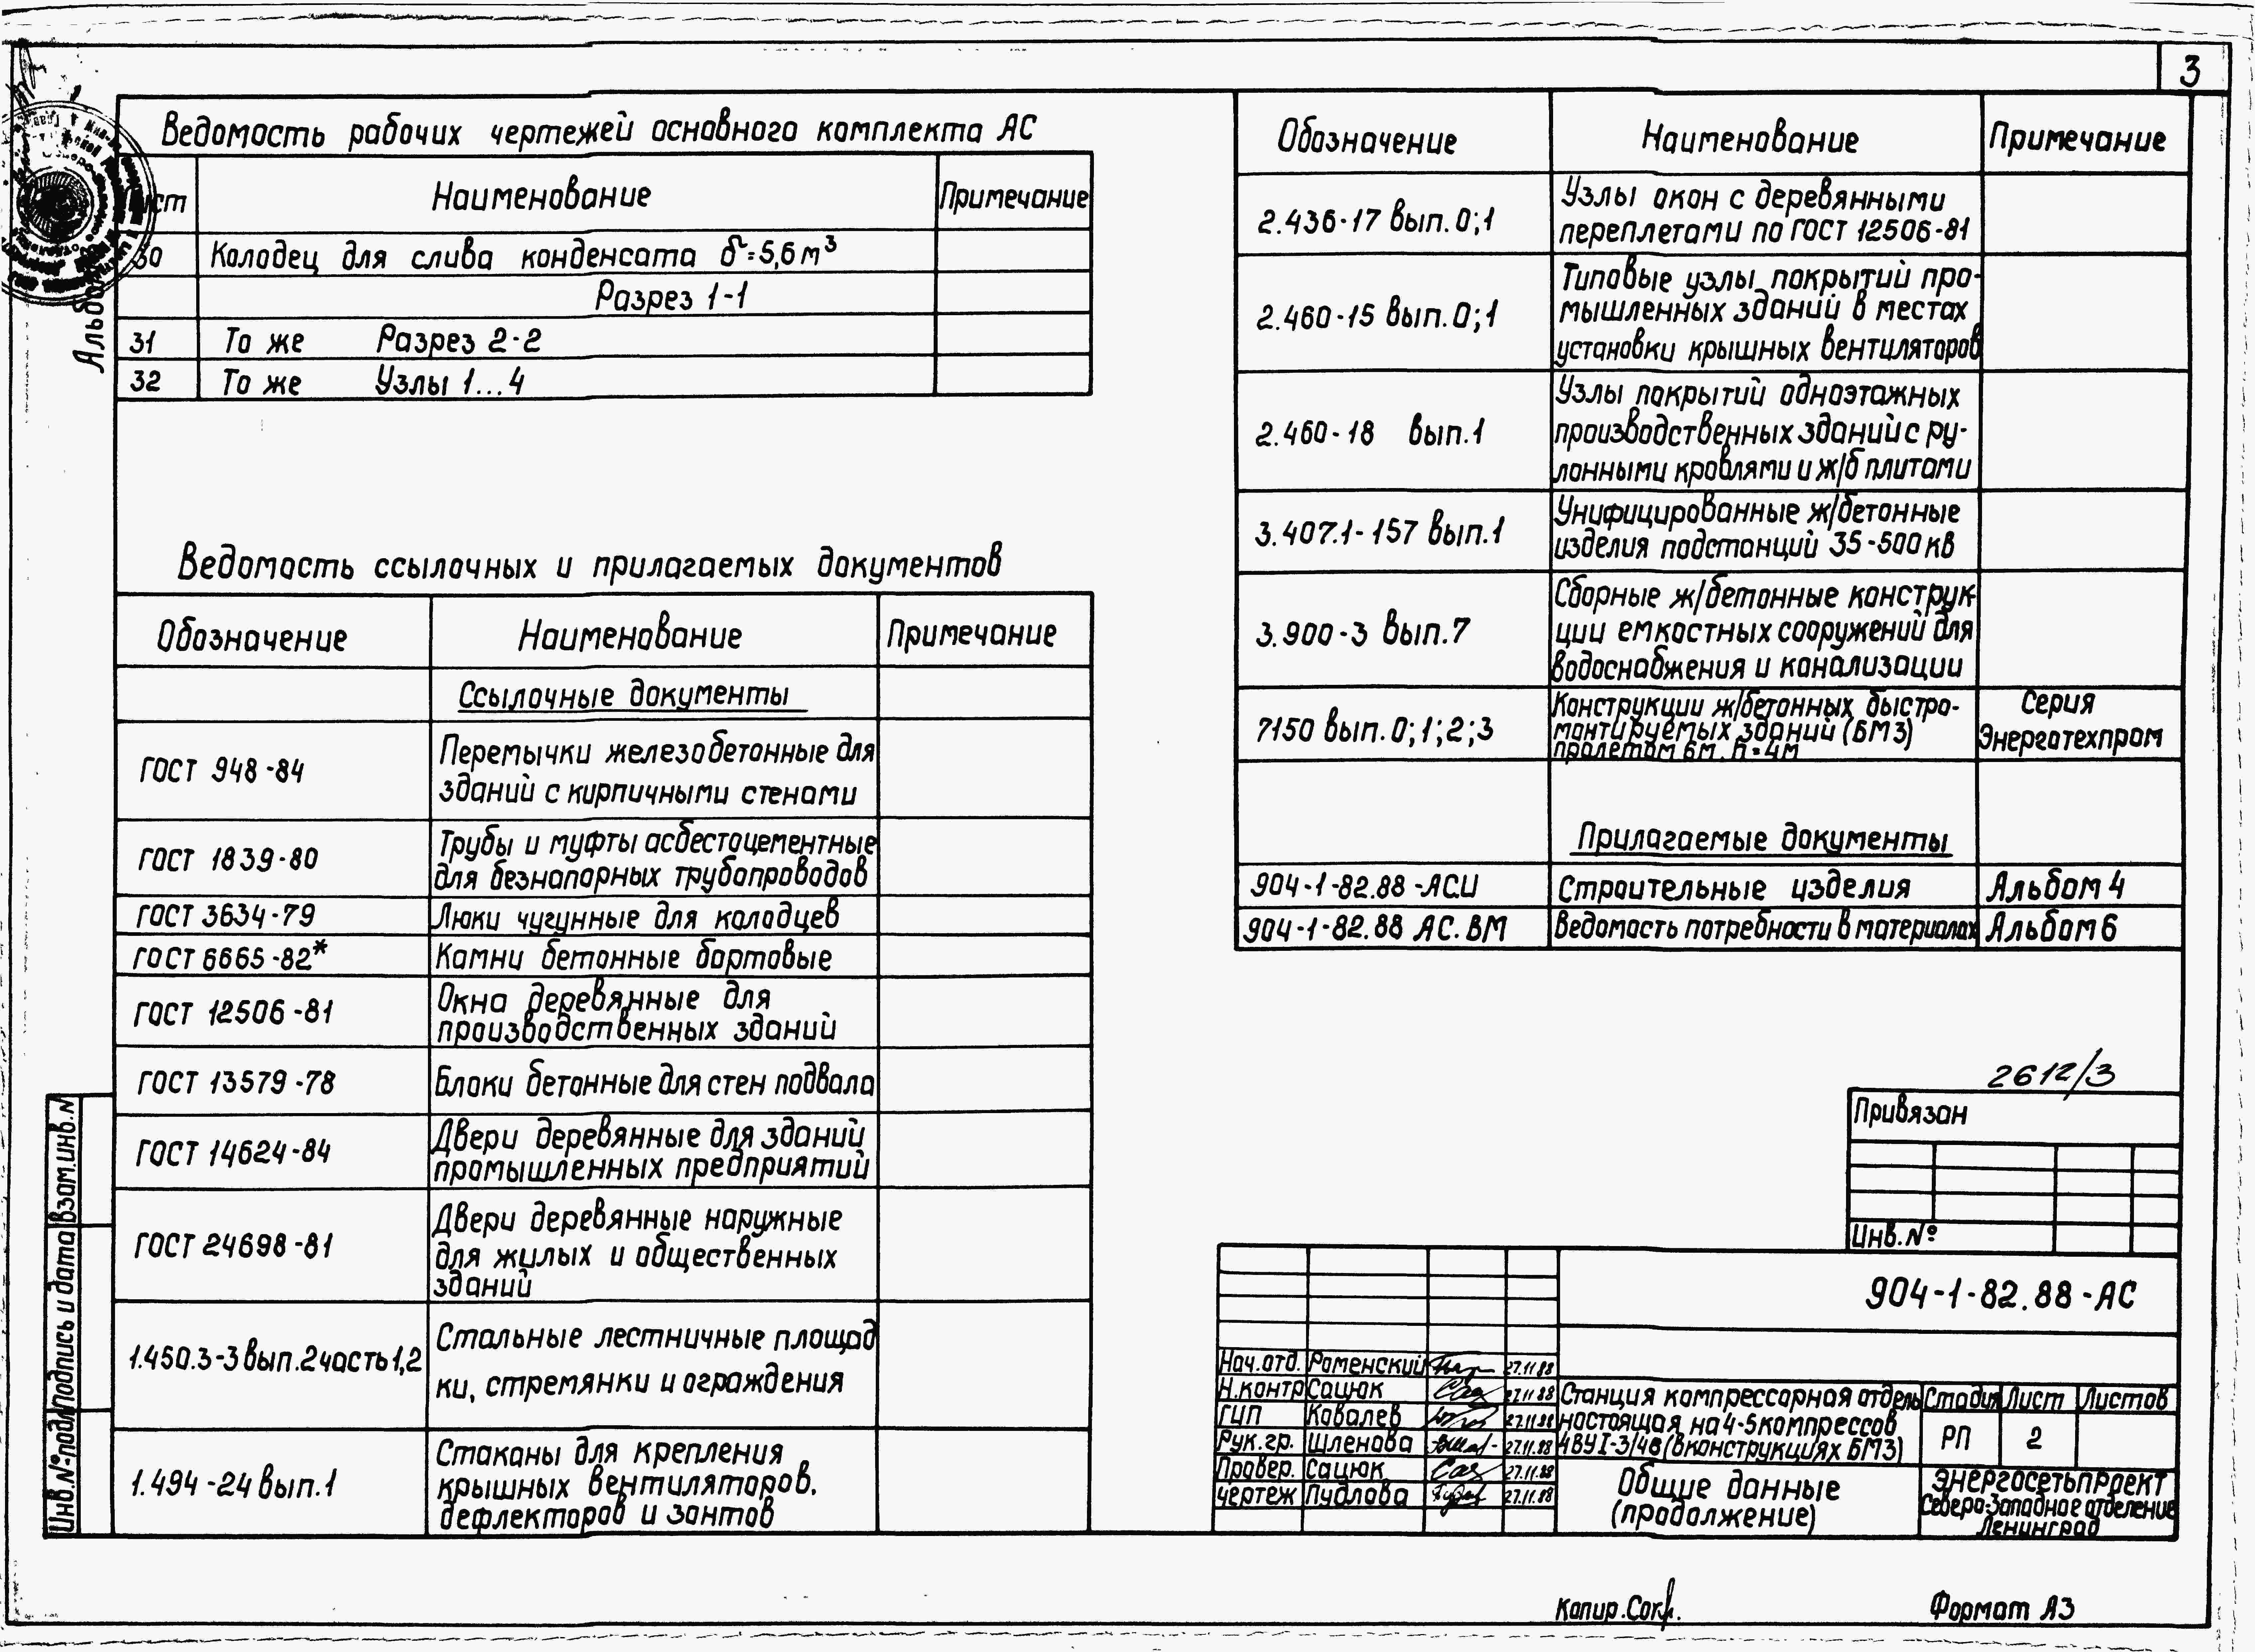 3
Ведомость рабочих чертежей основного комплекта АС
Наименование
Примечание
30
Колодец для слива конденсата
Разрез 1-1
31
То же Разрез 2-2
32
То же Узлы 1...4
Ведомость ссылочных и прилагаемых документов
Обозначение
Наименование
Примечание
Ссылочные документы
ГОСТ 948-84
Перемычки железобетонные для
зданий с кирпичными стенами
ГОСТ 1839-80
Трубы и муфты асбестоцементные
для безнапорных трубопроводов
ГОСТ 3634-79
Люки чугунные для колодцев
ГОСТ 6665-82*
Камни бетонные бортовые
ГОСТ 12506-81
Окна деревянные для
производственных зданий
ГОСТ 13579-78
Блоки бетонные для стен подвала
ГОСТ 14624-84
Двери деревянные для зданий
промышленных предприятий
ГОСТ 24698-81
Двери деревянные наружные
для жилых и общественных
зданий
1.450.3-3 вып.2 часть 1,2
Стальные лестничные площад
ки, стремянки и ограждения
1.494-24 вып.1
Стаканы для крепления
крышных вентиляторов,
дефлекторов и зонтов
Обозначение
Наименование
Примечание
2.436-17 вып.0;1
Узлы окон с деревянными
переплетами по ГОСТ 12506-81
2.460-15 вып.0;1
Типовые узлы покрытий про-
мышленных зданий в местах
установки крышных вентиляторов
2.460-18 вып.1
Узлы покрытий одноэтажных
производственных зданий с ру-
лонными кровлями и ж/б плитами
3.407.1-157 вып.1
Унифицированные ж/бетонные
изделия подстанций 35-500кв
3.900-3 вып.7
Сборные ж/бетонные конструк
ции емкостных сооружений для
водоснабжения и канализации
7150 вып.0;1;2;3
Конструкции ж/бетонных быстро-
монтируемых зданий (БМЗ)
пролетом 6м, h=4м
Серия
Энерготехпром
Прилагаемые документы
904-1-82.88-АС.И
Строительные изделия
Альбом 4
904-1-82.88 АС.ВМ
Ведомость потребности в материалах
Альбом 6
2612/3
Привязан
Инв.№
904-1-82.88-АС
Нач.отд. Раменский 27.11.88
Н.контр Сацюк 27.11.88
ГИП Ковалев 27.11.88
Рук.гр. Шленова 27.11.88
Провер. Сацюк 27.11.88
чертеж Пудлова 27.11.88
Станция компрессорная отдель
настоящая на 4-5 компрессов
4ВУ1-3/46 (в конструкциях БМЗ)
Стадия Лист Листов
РП 2
Общие данные
(продолжение)
Энергосетьпроект
Северо-Западное отделение
Ленинград
Взам.инв.N
Подпись и дата
Инв.№ подл
Копир.
Формат А3